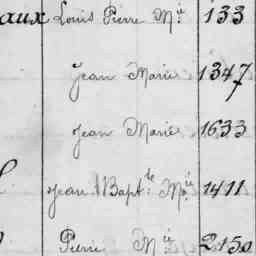 aux Louis Pierre M.ie 133
Jean Marie 1347
Jean Marie 1633
Jean Bapt.te M.ie 1411
Pierre M.ie 2150